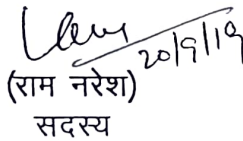 20/9/19
(राम नरेश)
सदस्य